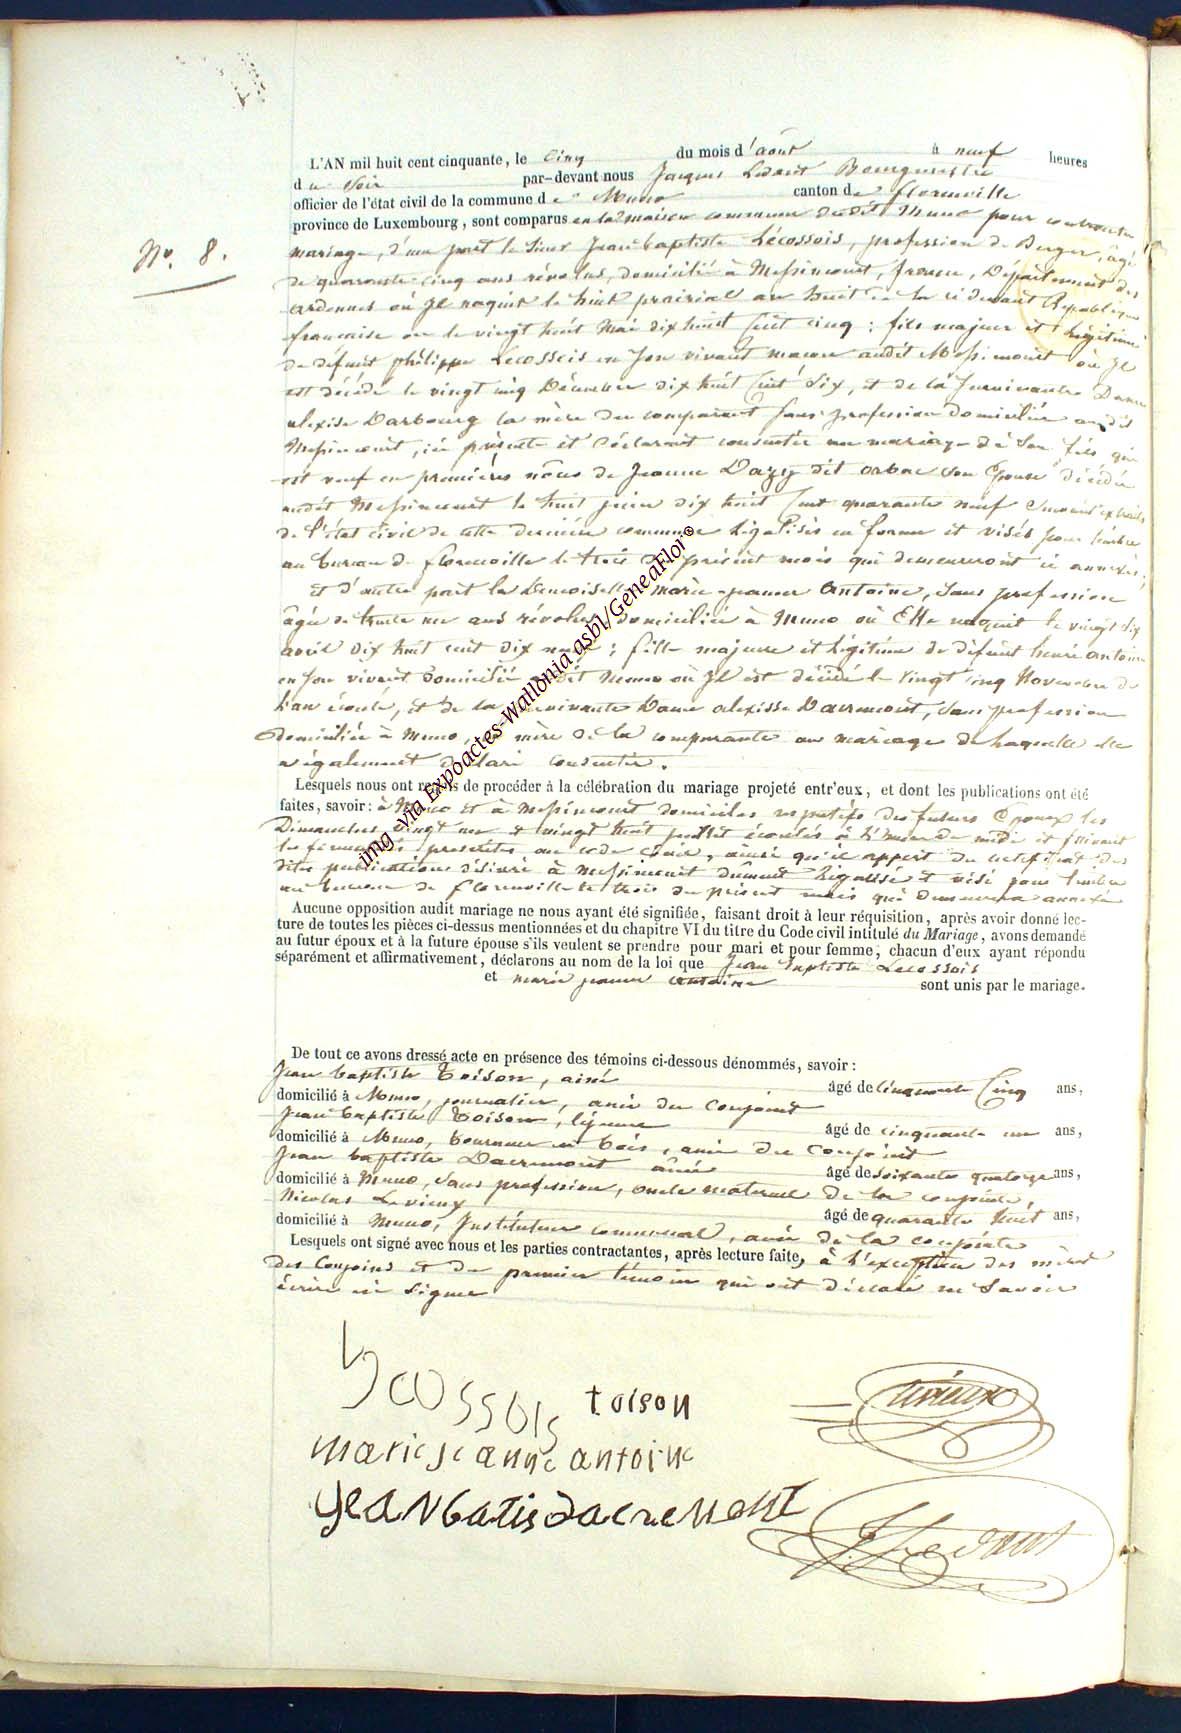 No. 8.
L'AN mil huit cent cinquante, le cinq du mois d'août à neuf heures
du soir par-devant nous Jacques Ledant Bourgmestre
officier de l'état civil de la commune de Muno canton de florenville
province de Luxembourg, sont comparus en la maison commune dudit Muno pour contracter
mariage, d'une part le Sieur Jean baptiste Lécossois, profession de Berger, âgé
de quarante cinq ans révolus, domicilié à Messincourt, france, Département des
ardennes où Il naquit le huit prairial an huit de la ci devant République
française ou le vingt huit Mai dix huit Cent cinq ; fils majeur et Légitime
de défunt philippe Lécossois en Son vivant audit Messincourt où Il
est décédé le vingt cinq Décembre dix huit Cent Six, et de la Survivante Dame
alexise Darbourg la mère du comparant Sans profession domiciliée audit
Messincourt, ici présente et Déclarant consentir au mariage de Son fils qui
est veuf en premières nôces de Jeanne Dazy dit orban Son Epouse décédée
audit Messincourt le huit juin dix huit Cent quarante neuf Suivant extraits
de l'état Civil de cette dernière commune Légalisés en forme et visés pour timbre
au bureau de florenville le trois du présent mois qui demeureront ci annexés ;
Et d'autre part la Demoiselle marie-jeanne Antoine, Sans profession
âgée de trente un ans révolus, domiciliée à Muno où Elle naquit le vingt Six
avril dix huit cent dix neuf ; fille majeure et Légitime de défunt henri antoine
en Son vivant Domicilié audit Muno où Il est décédé le vingt cinq Novembre de
L'an écoulé, et de la Survivante Dame alexisse Dacremont, Sans profession
domiciliée à Muno, la mère de la comparante au mariage de Laquelle elle
a également déclaré consentir.
Lesquels nous ont requis de procéder à la célébration du mariage projeté entr'eux, et dont les publications ont été
faites, savoir : à Muno et à Messincourt domiciles respectifs des futurs Epoux les
Dimanches vingt un et vingt huit juillet écoulés à L'heure de midi et Suivant
les formalités prescrites au code Civil, ainsi qu'il appert du certificat des
dites publications délivré à Messincourt dûment Légalisé et visé pour timbre
au bureau de florenville le trois du présent mois qui demeurera annexé
Aucune opposition audit mariage ne nous ayant été signifiée, faisant droit à leur réquisition, après avoir donné lec-
ture de toutes les pièces ci-dessus mentionnées et du chapitre VI du titre du Code civil intitulé du Mariage, avons demandé
au futur époux et à la future épouse s'ils veulent se prendre pour mari et pour femme; chacun d'eux ayant répondu
séparément et affirmativement, déclarons au nom de la loi que Jean Baptiste Lecossois
et marie jeanne antoine sont unis par le mariage.
De tout ce avons dressé acte en présence des témoins ci-dessous dénommés, savoir :
Jean baptiste Toison, ainé âgé de Cinquante Cinq ans,
domicilié à Muno, journalier, ami du Conjoint
Jean baptiste Toison, le jeune âgé de cinquante un ans,
domicilié à Muno, tourneur en bois, ami du Conjoint
Jean baptiste Dacremont ainé âgé de Soixante quatorze ans,
domicilié à Muno, Sans profession, oncle maternel de la conjointe,
Nicolas Levieux âgé de quarante huit ans,
domicilié à Muno, Instituteur communal, ami de la Conjointe
Lesquels ont signé avec nous et les parties contractantes, après lecture faite, à L'exception des mères
des Conjoins et du premier témoin qui ont déclaré ne Savoir
écrire ni Signer
Lcossois toison Levieux
marie jeanne antoine
jeanbatis dacremont
J. Ledant
img - via Expoactes-Wallonia asbl/GeneaFloi©